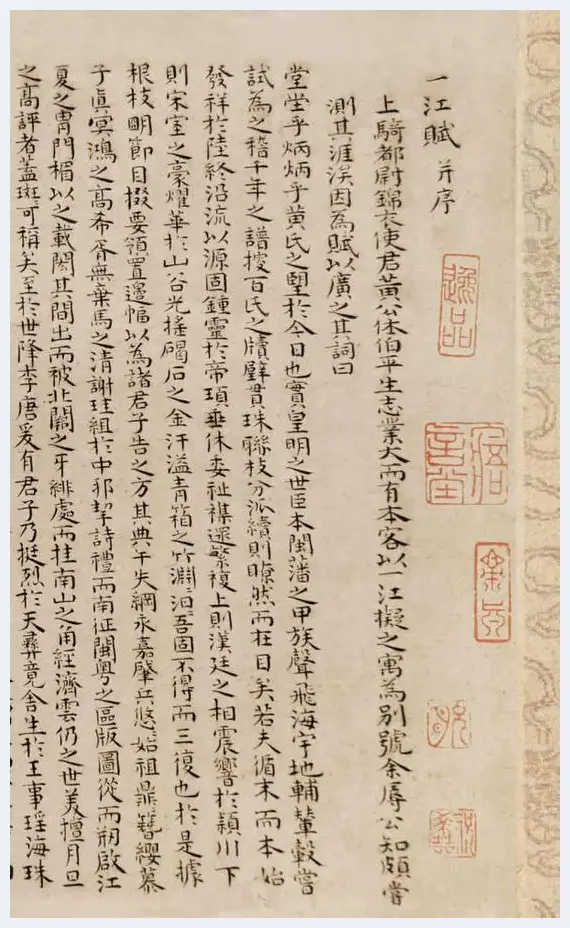 一江賦 并序
上騎都尉錦衣使君黃公休伯平生志業大而有本客以一江擬之寓為別號余辱公知頗嘗
測其涯涘因為賦以廣之其詞曰
堂堂乎炳炳乎黃氏之朢於今日也實皇明之世臣本閩藩之甲族聲飛海宇地輔輦轂嘗
試為之稽千年之譜搜百氏之牘璧貫珠聯枝分派續則瞭然而在目矣若夫循末而本始
發祥於陸終沿流以源固鍾靈於帝頊垂休委祉襟還繁複上則漢廷之相震響於潁川下
則宋室之豪燿華於山谷光搖碣石之金汗溢青箱之竹淵洄吾固不得而三復也於是據
根枝明節目掇要領置邊幅以為諸君子告之方其典午失綱永嘉肇兵悠悠始祖鼎簪纓慕
子真冥鴻之高希胥無棄馬之清謝珪組於中邦挈詩禮而南征閩粵之區版圖從而朔啟江
夏之冑門楣以之載閎其間出而被北闕之牙緋處而拄南山之角經濟雲仍之世美擅月旦
之高評者蓋斑斑可稱矣至於世降李唐爰有君子乃挺烈於天彞竟舍生於王事瑤海珠
逸品